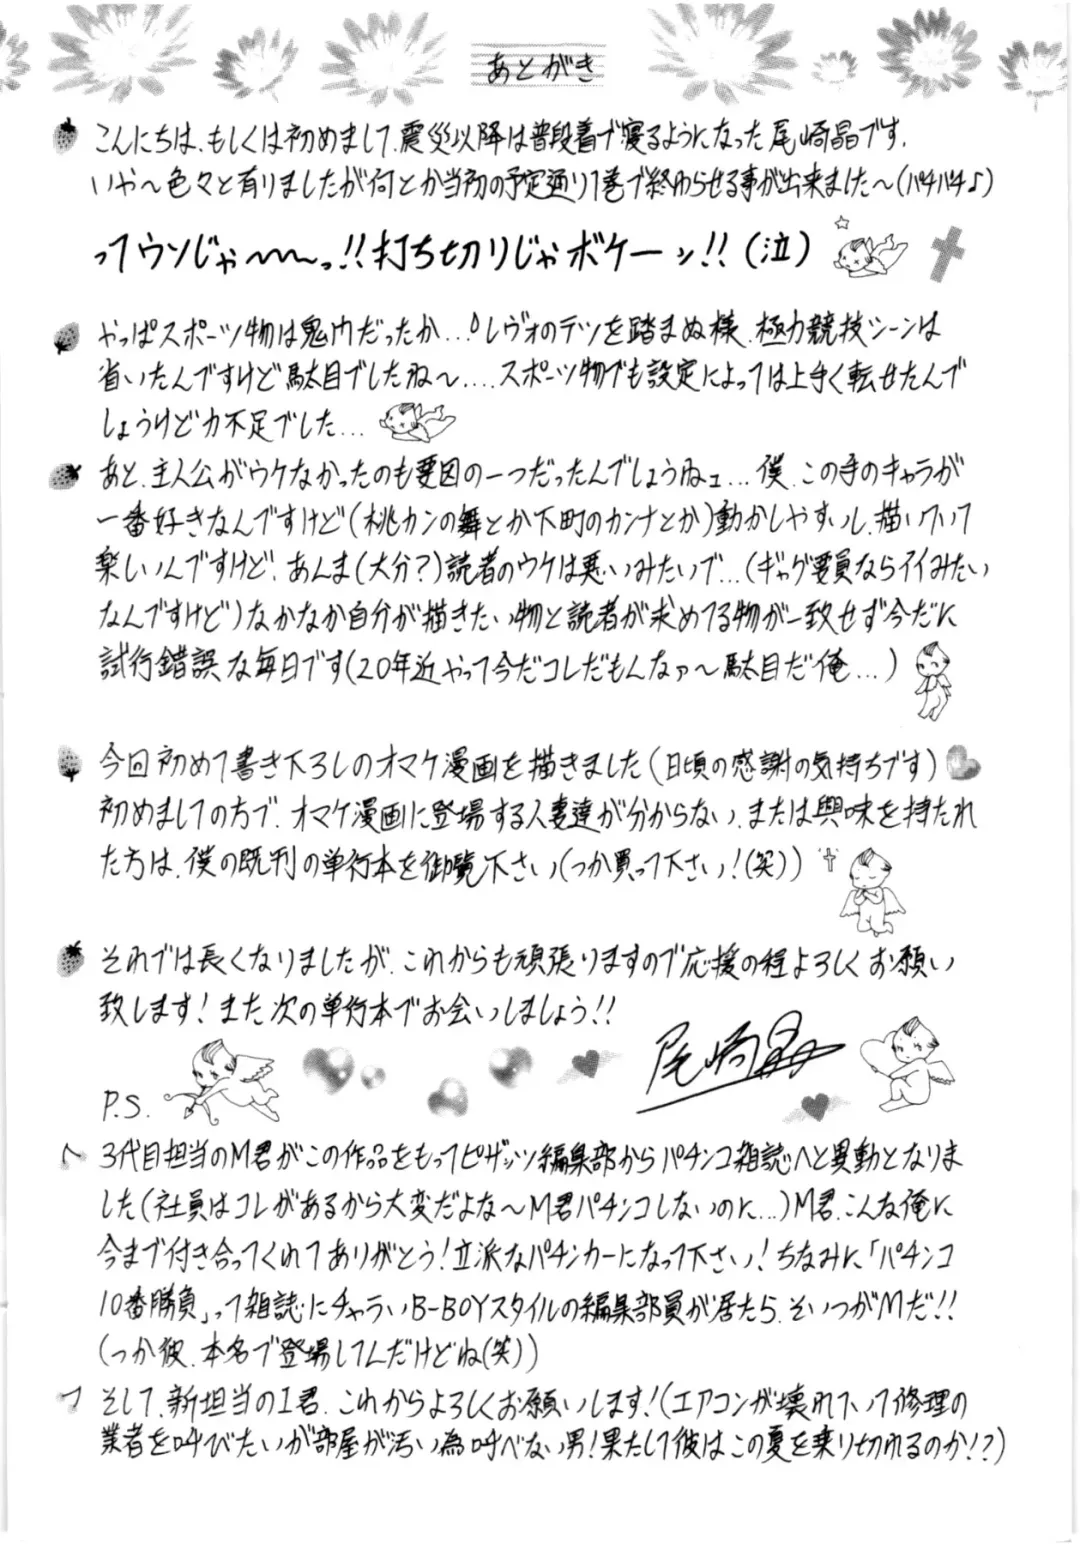 あとがき
こんにちは、もしくは初めまして、震災以降は普段着で寝るようになった尾崎晶です。
いや〜色々と有りましたが何とか当初の予定通り1巻で終わらせる事が出来ました〜(パチパチ♪)
ってウソじゃ〜〜〜っ!!打ち切りじゃボケーッ!!(泣)
やっぱスポーツ物は鬼門だったか...!レヴォのテツを踏まぬ様、極力競技シーンは
省いたんですけど駄目でしたね〜....スポーツ物でも設定によっては上手く転せたんで
しょうけど力不足でした...
あと、主人公がウケなかったのも要因の一つだったんでしょうねェ...僕、この手のキャラが
一番好きなんですけど(桃カンの舞とか下町のカンナとか)動かしやすいし、描いてて
楽しいんですけど、あんま(大分?)読者のウケは悪いみたいで...(ギャグ要員ならイイみたい
なんですけど)なかなか自分が描きたい物と読者が求めてる物が一致せず今だに
試行錯誤な毎日です(20年近やって今だコレだもんなァ〜駄目だ俺...)
今回初めて書き下ろしのオマケ漫画を描きました(日頃の感謝の気持ちです)
初めましての方で、オマケ漫画に登場する人妻達が分からない、または興味を持たれ
た方は、僕の既刊の単行本を御覧下さい(つか買って下さい!(笑))
それでは長くなりましたが、これからも頑張りますので応援の程よろしくお願い
致します!また次の単行本でお会いしましょう!!
尾崎晶
P.S.
3代目担当のM君がこの作品をもってピザッツ編集部からパチンコ雑誌へと異動となりま
した(社員はコレがあるから大変だよな〜M君パチンコしないのに...)M君、こんな俺に
今まで付き合ってくれてありがとう!立派なパチンカーになって下さい!ちなみに「パチンコ
10番勝負」って雑誌にチャラいB-BOYスタイルの編集部員が居たら、そいつがMだ!!
(つか彼、本名で登場してんだけどね(笑))
そして、新担当のI君、これからよろしくお願いします!(エアコンが壊れていて修理の
業者を呼びたいが部屋が汚い為呼べない男!果たして彼はこの夏を乗り切れるのか!?)